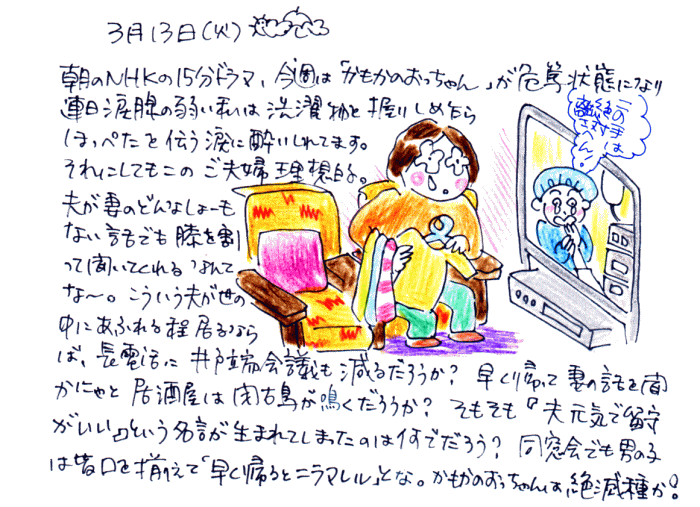 3月13日(火)
朝のNHKの15分ドラマ、今週は「かもかのおっちゃん」が危篤状態になり
連日涙腺の弱い私は洗濯物を握りしめながら
ほっぺたを伝う涙に酔いしれてます。
それにしてもこのご夫婦理想的。
夫が妻のどんなしょーも
ない話でも膝を割
って聞いてくれるなんて
な〜。こういう夫が世の
中にあふれる程居るなら
ば、長電話に井戸端会議も減るだろうか? 早く帰って妻の話を聞
かにゃと居酒屋は閑古鳥が鳴くだろうか? そもそも『夫元気で留守
がいい』という名言が生まれてしまったのは何でだろう? 同窓会でも男の子
は皆口を揃えて「早く帰るとニラマレル」とな。かもかのおっちゃんは絶滅種か!
この手は
絶対